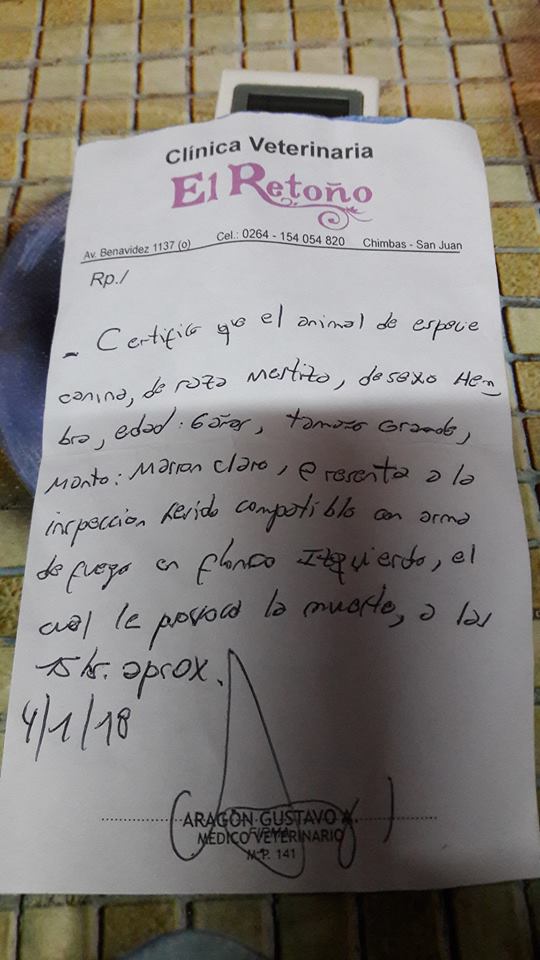 Clínica Veterinaria
El Retoño
Av. Benavidez 1137 (o) Cel.: 0264 - 154 054 820 Chimbas - San Juan
Rp./
- Certifico que el animal de especie
canina, de raza mestiza, de sexo Hem
bra, edad: 6 años, tamaño Grande,
Manto: Marron claro, Presenta a la
inspeccion herida compatible con arma
de fuego en flanco Izquierdo, el
cual le provoco la muerte, a las
15 hs. aprox.
4/1/18
ARAGON GUSTAVO A.
MEDICO VETERINARIO
FIRMA
M.P. 141